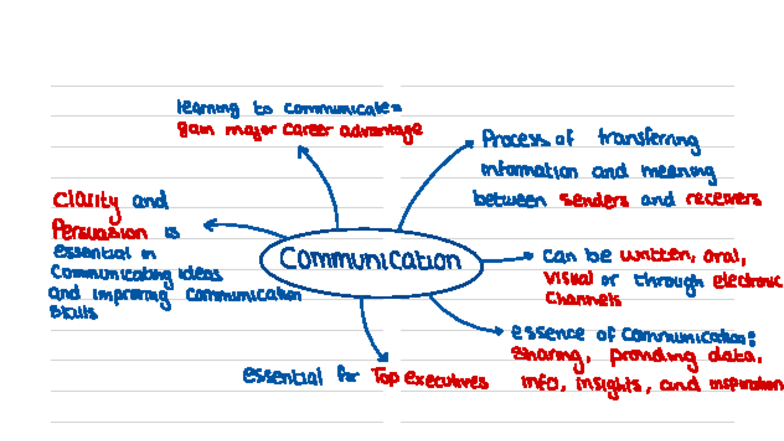 learning to communicate=
gain major career advantage
Process of transferring
information and meaning
between senders and receivers
Clarity and
Persuasion is
essential in
Communicating ideas
and improving communication
skills
Communication
can be written, oral,
visual or through electronic
channels
essence of communication:
sharing, providing data,
info, insights, and inspiration
essential for Top executives